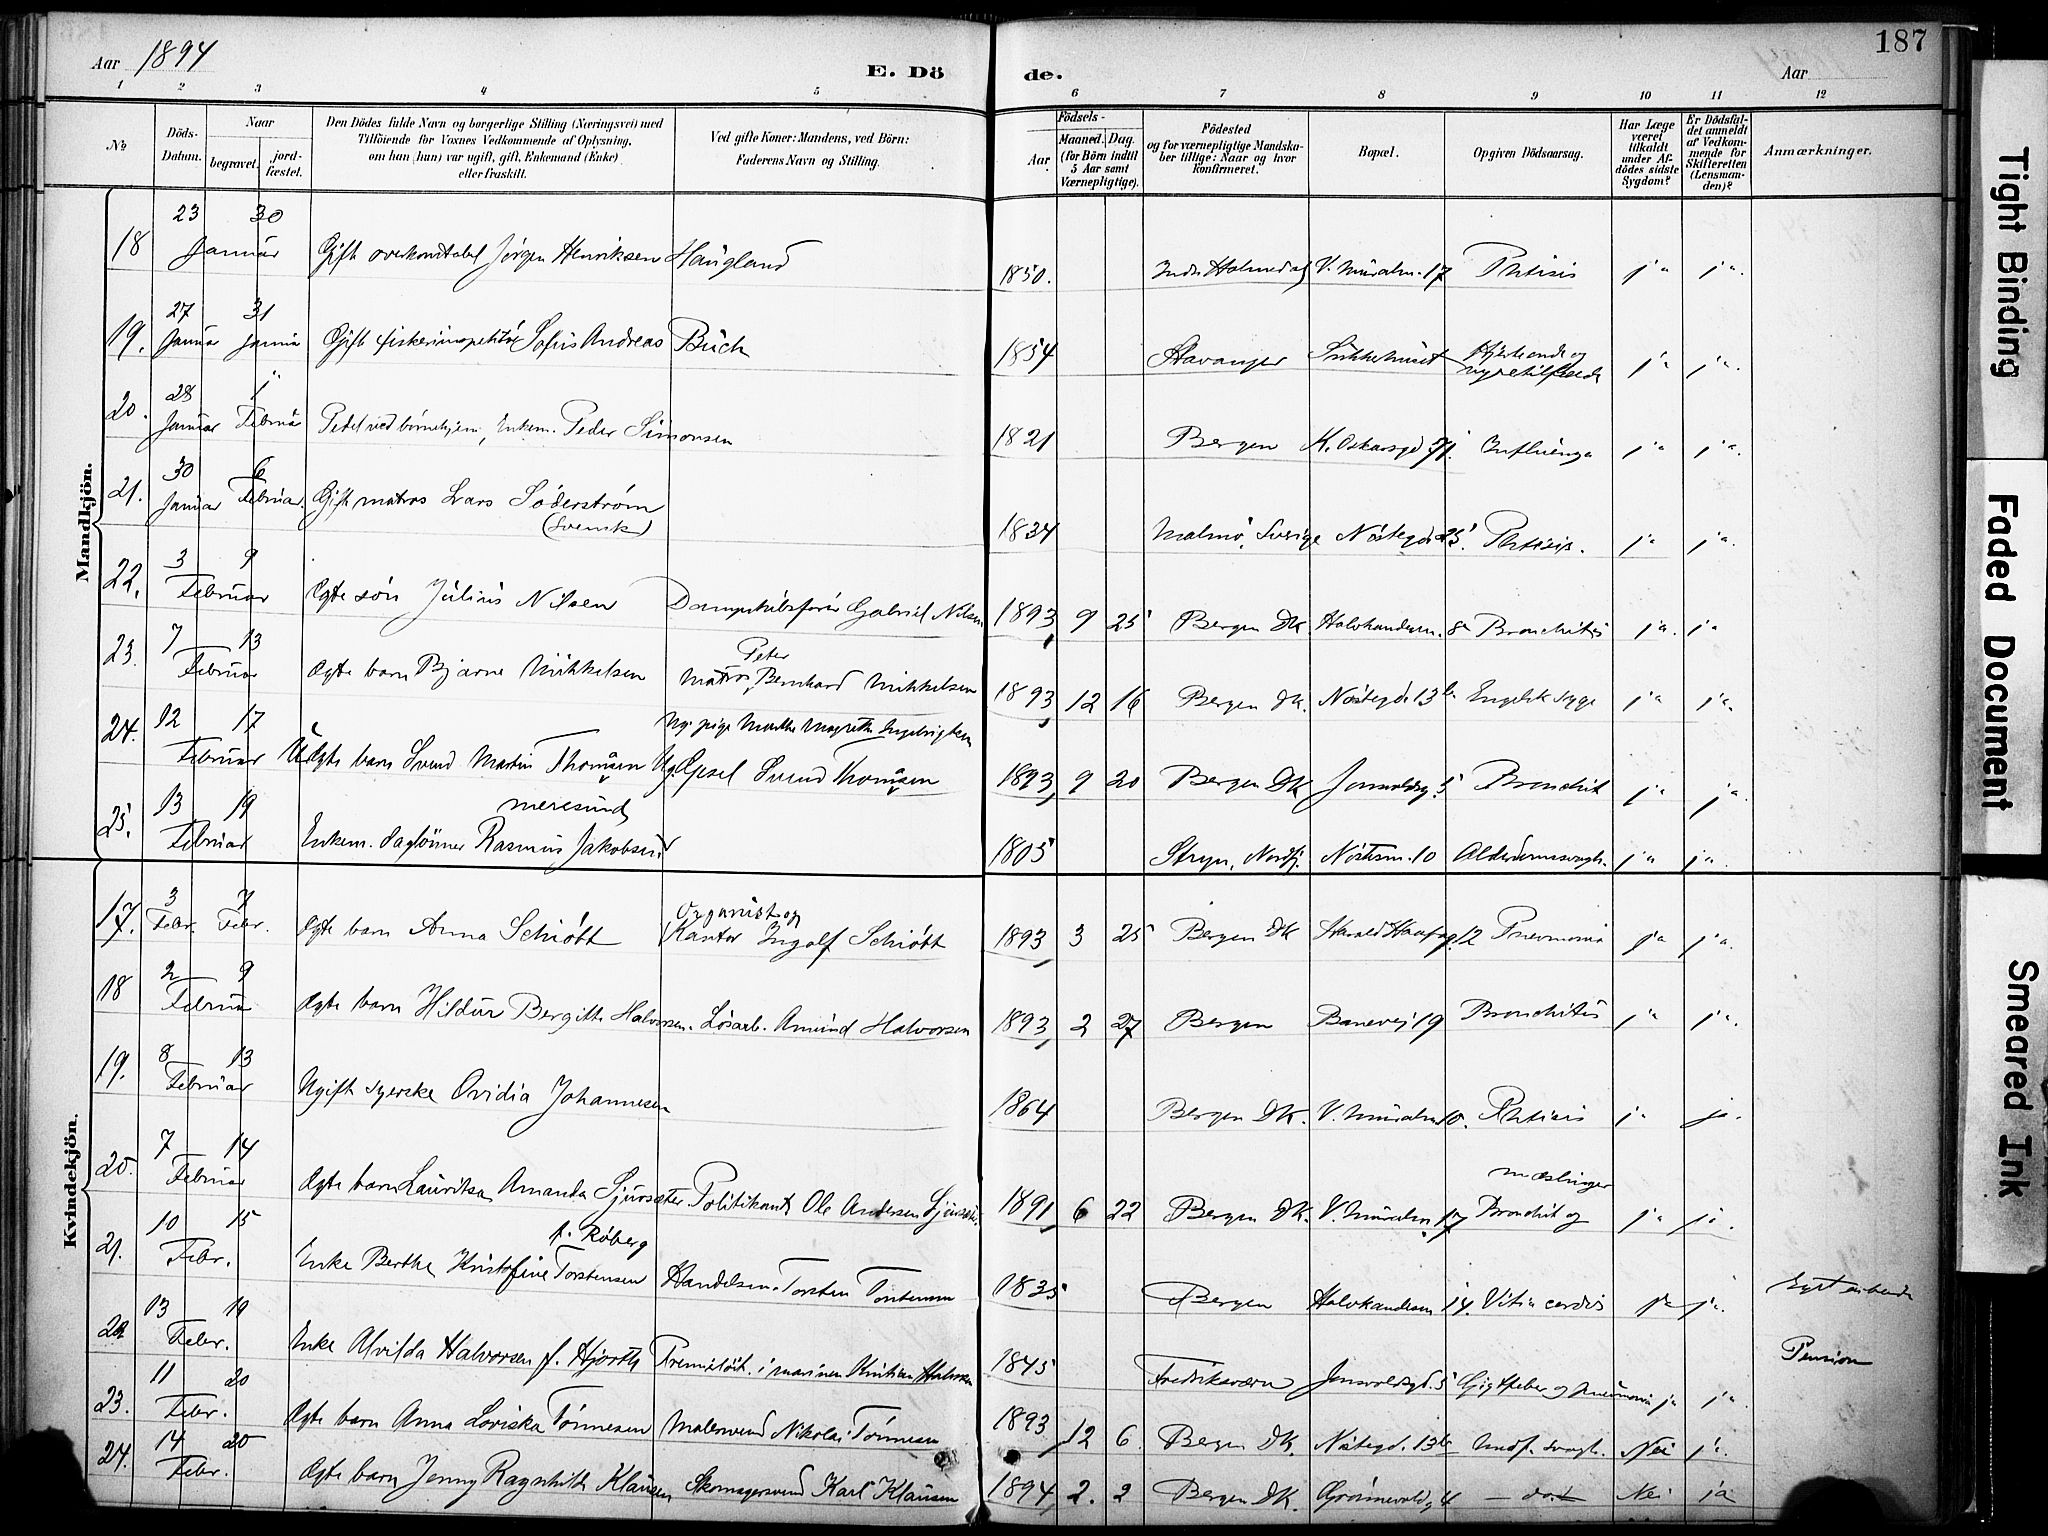 187
Aar 1894
E. Dö de.
Aar
1 2 3 4 5 6 7 8 9 10 11 12
№
Döds-Datum.
Naar
begravet.
jord-fæstet.
Den Dödes fulde Navn og borgerlige Stilling (Næringsvei) med
Tilföiende for Voxnes Vedkommende af Oplysning,
om han (hun) var ugift, gift, Enkemand (Enke)
eller fraskilt.
Ved gifte Koner: Mandens, ved Börn:
Faderens Navn og Stilling.
Födsels-
Aar.
Maaned. Dag.
(for Börn indtil
5 Aar samt
Værnepligtige).
Födested
og for værnepligtige Mandska-
ber tillige: Naar og hvor
konfirmeret.
Bopæl.
Opgiven Dödsaarsag.
Har Læge
været
tilkaldt
under Af-
dödes sidste
Sygdom?
Er Dödsfal-
det anmeldt
af Vedkom-
mende for
Skifteretten
(Lensman-
den)?
Anmærkninger.
Mandkjön.
18 23 30 Januar Gift overkonstabel Jörgen Henriksen Haugland 1850. Indr Holmedal V. Muralm. 17 Phtisis ja ja.
19. 27 Januar 31 Januar Gift fiskeriinspektör Sofus Andreas Buch 1854 Stavanger Sukkerhuset ja ja.
20. 28 Januar 1 Februar Pedel ved börnehjem, Enkem. Peder Simonsen 1821 Bergen K. Oskarsgd 71. Influenza ja ja.
21. 30 Januar 6 Februar. Gift matros Lars Söderström
(Svensk) 1834 Malmö, Sverige Nöstegd 25. Phtisis. ja ja.
22. 3 9 Februar Ægte sön Julius Nilsen Dampskibsförer Gabriel Nilsen 1893, 9 25 Bergen DK. Halvkandesm. 8a Bronchitis ja. ja
23. 7 13 Februar Ægte barn Bjarne Mikkelsen Matros Peter Bernhard Mikkelsen 1893, 12 16 Bergen DK. Nöstegd. 13b Engelsk syge ja ja.
24. 12 17 Februar Uægte barn Svend Martin Thomsen Ug. pige Marthe Magrethe Ingebrigtsen
Ug. Gesel Svend Thomsen 1893, 9 20 Bergen DK Jonsvoldsg. 5 Bronchit ja ja.
25. 13 19 Februar Enkem. daglönner Rasmus Jakobsen
Meresund 1805 Stryn, Nordfj. Nöstesm. 10 Alderdomssvagh. ja ja.
Kvindekjön.
17. 3 Febr. 7 Febr. Ægte barn Anna Schiött Organist og
Kantor Ingolf Schiött 1893, 3 25 Bergen DK Harald Haarfag. 12 Pneumoni ja ja.
18 2 9 Februar Ægte barn Hildur Bergitte Halvorsen. Lösarb. Amund Halvorsen 1893, 2 27 Bergen Banevej 19 Bronchitis ja ja.
19. 8 13 Februar Ugift syerske Ovidia Johannesen 1864 Bergen DK. V. Muralm 10. Phtisis ja ja.
20. 7 14 Februar Ægte barn Lauritsa Amanda Sjursæter Politikonst. Ole Andersen Sjursæter 1891, 6 22 Bergen DK. V. Muralm. 17 Bronchit og
mæslinger ja ja.
21. 10 15 Febr. Enke Berthe Kristofine Torstensen
f. Röberg Handelsm. Torsten Torstensen 1835 Bergen Halvkandesm 14. Vitia cordis ja ja.
22 13 19 Febr. Enke Alvilda Halvorsen f. Hjorth Premierlöit. i marinen Kristian Halvorsen 1845 Fredriksværn Jonsvoldsgd. 5 Gigtfeber og pneumonia ja ja. Pension
23. 11 20 Febr. Ægte barn Anna Loviska Tönnesen Malersvend Nikolai Tönnesen 1893, 12 6. Bergen DK. Nöstegd. 13b Medf. svagh. Nei ja.
24. 14 20 Febr. Ægte barn Jenny Ragnhild Klausen Skomagersvend Karl Klausen 1894, 2. 2 Bergen DK. Grönnevold. 4 — do. — Nei ja
Tight Binding
Faded Document
Smeared Ink